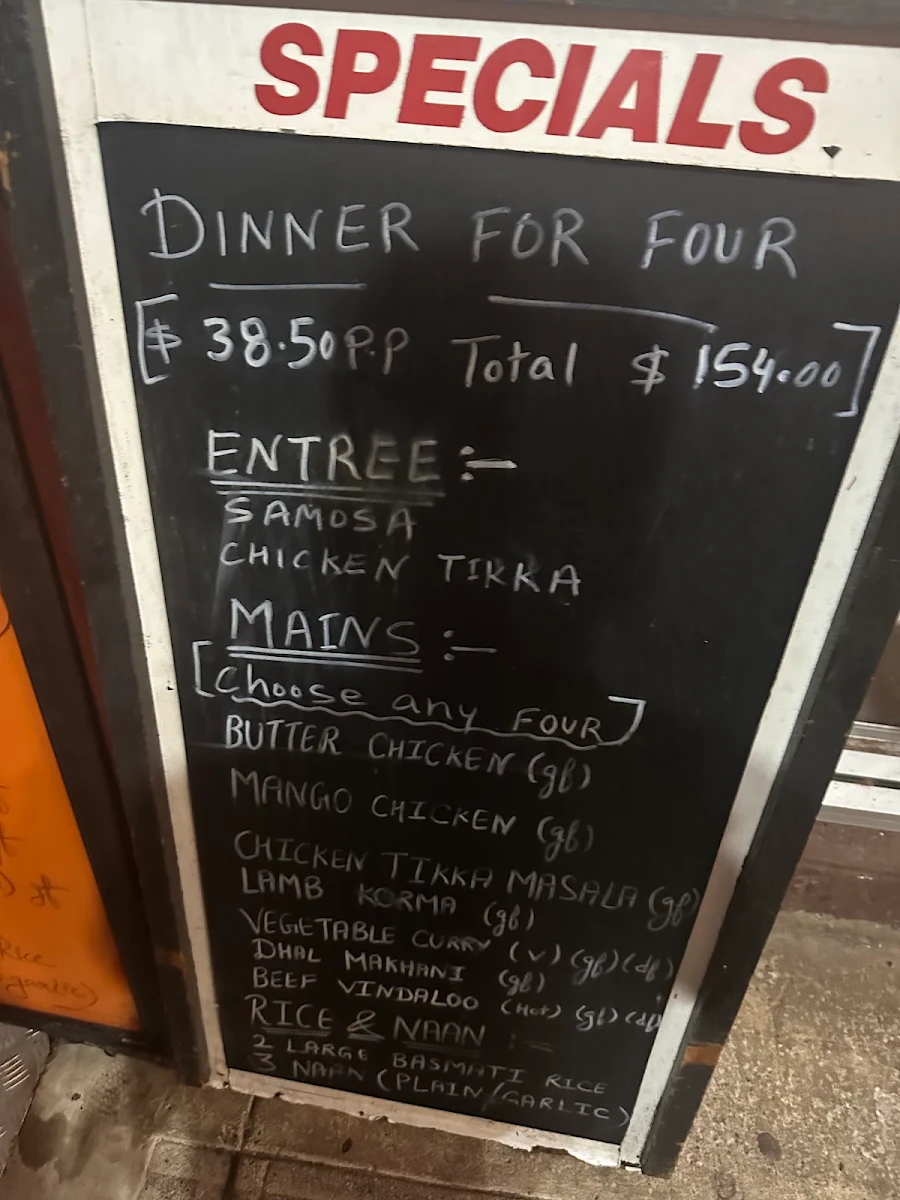 SPECIALS
DINNER FOR FOUR
[$ 38.50 P.P Total $ 154.00]
ENTREE :-
SAMOSA
CHICKEN TIKKA
MAINS :-
[Choose any FOUR]
BUTTER CHICKEN (gf)
MANGO CHICKEN (gf)
CHICKEN TIKKA MASALA (gf)
LAMB KORMA (gf)
VEGETABLE CURRY (v) (gf) (df)
DHAL MAKHANI (gf)
BEEF VINDALOO (Hot) (gf) (df)
RICE & NAAN :-
2 LARGE BASMATI RICE
3 NAAN (PLAIN/GARLIC)
Rice
garlic)